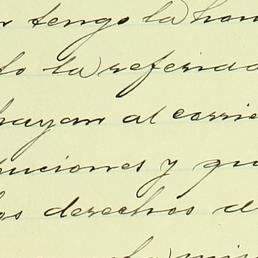 r tengo la hon
to la referida
hayan al corrie
uciones y qu
los derechos d
la mis